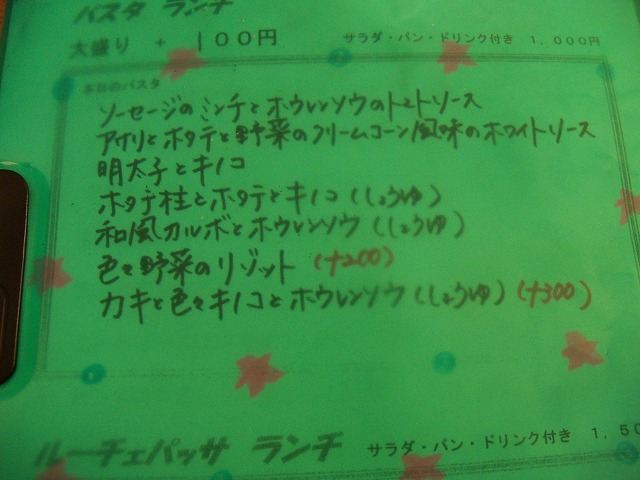 パスタ ランチ
大盛り + 100円 サラダ・パン・ドリンク付き 1,000円
本日のパスタ
ソーセージのミンチとホウレンソウのトマトソース
アサリとホタテと野菜のクリームコーン風味のホワイトソース
明太子とキノコ
ホタテ柱とホタテとキノコ(しょうゆ)
和風カルボとホウレンソウ(しょうゆ)
色々野菜のリゾット (+200)
カキと色々キノコとホウレンソウ(しょうゆ) (+300)
ルーチェパッサ ランチ サラダ・パン・ドリンク付き 1,50